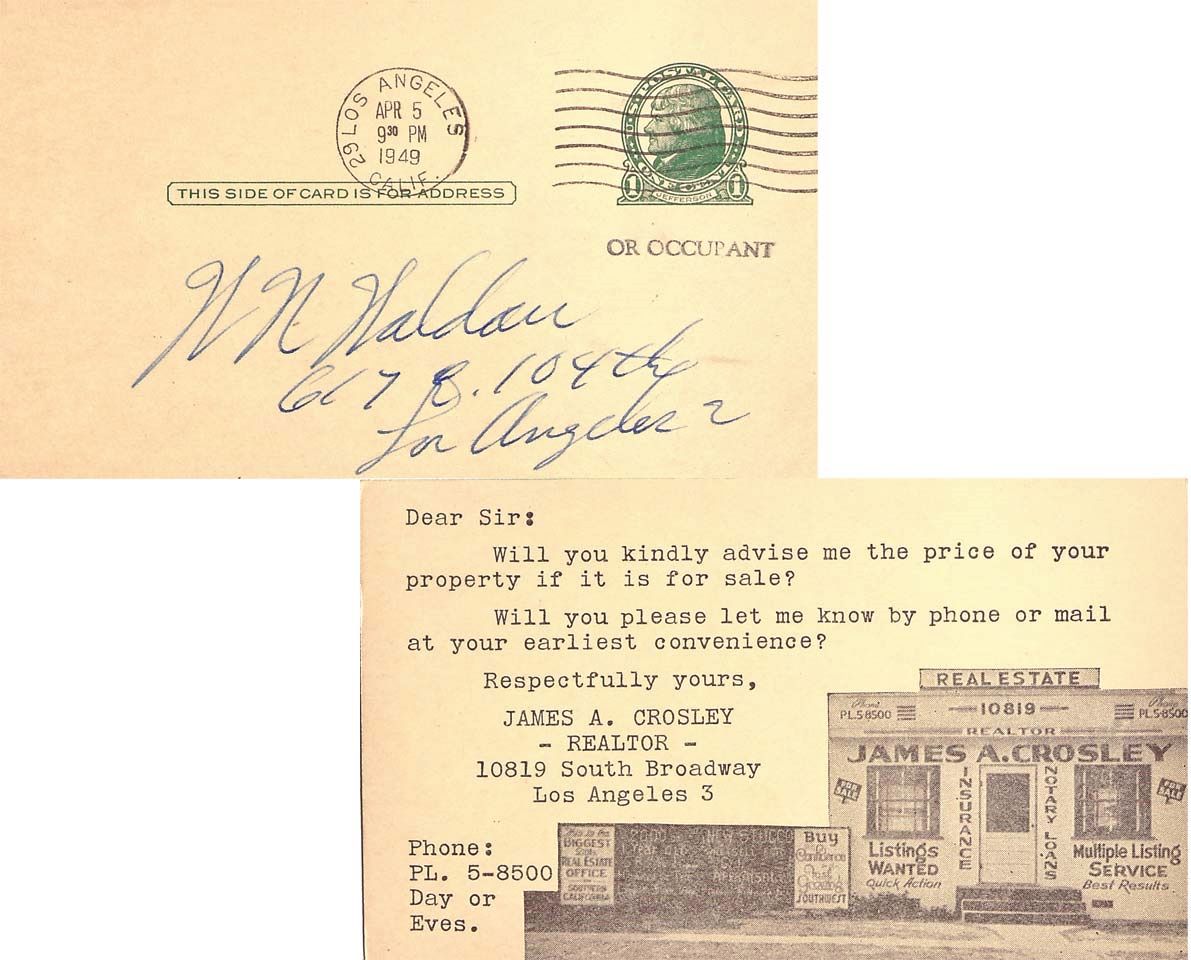 29 LOS ANGELES
APR 5
9 30 PM
1949
CALIF.
THIS SIDE OF CARD IS FOR ADDRESS
1 JEFFERSON 1
OR OCCUPANT
617 E. 104th
Los Angeles 2
Dear Sir:
Will you kindly advise me the price of your
property if it is for sale?
Will you please let me know by phone or mail
at your earliest convenience?
Respectfully yours,
JAMES A. CROSLEY
- REALTOR -
10819 South Broadway
Los Angeles 3
Phone:
PL. 5-8500
Day or
Eves.
REAL ESTATE
Phone PL.5-8500
10819
Phone PL.5-8500
REALTOR
JAMES A. CROSLEY
FOR SALE
INSURANCE
NOTARY LOANS
FOR SALE
Listings
WANTED
Quick Action
Multiple Listing
SERVICE
Best Results
BIGGEST
REAL ESTATE
OFFICE
SOUTHERN
CALIFORNIA
Buy
SOUTHWEST